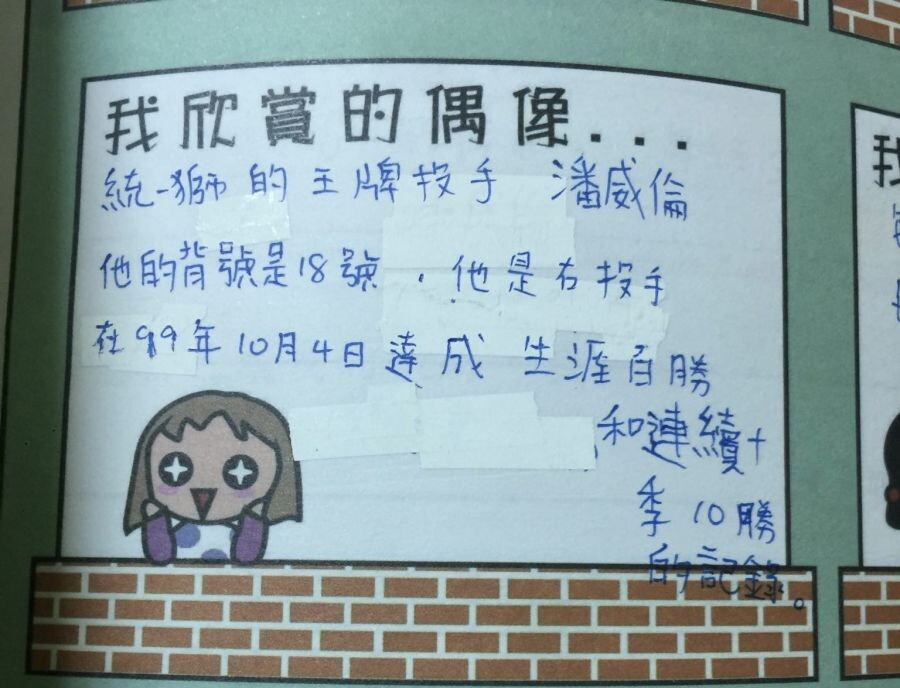 我欣賞的偶像...
統一獅的王牌投手 潘威倫
他的背號是18號．他是右投手
在99年10月4日達成 生涯百勝
和連續十
季10勝
的記錄。
我